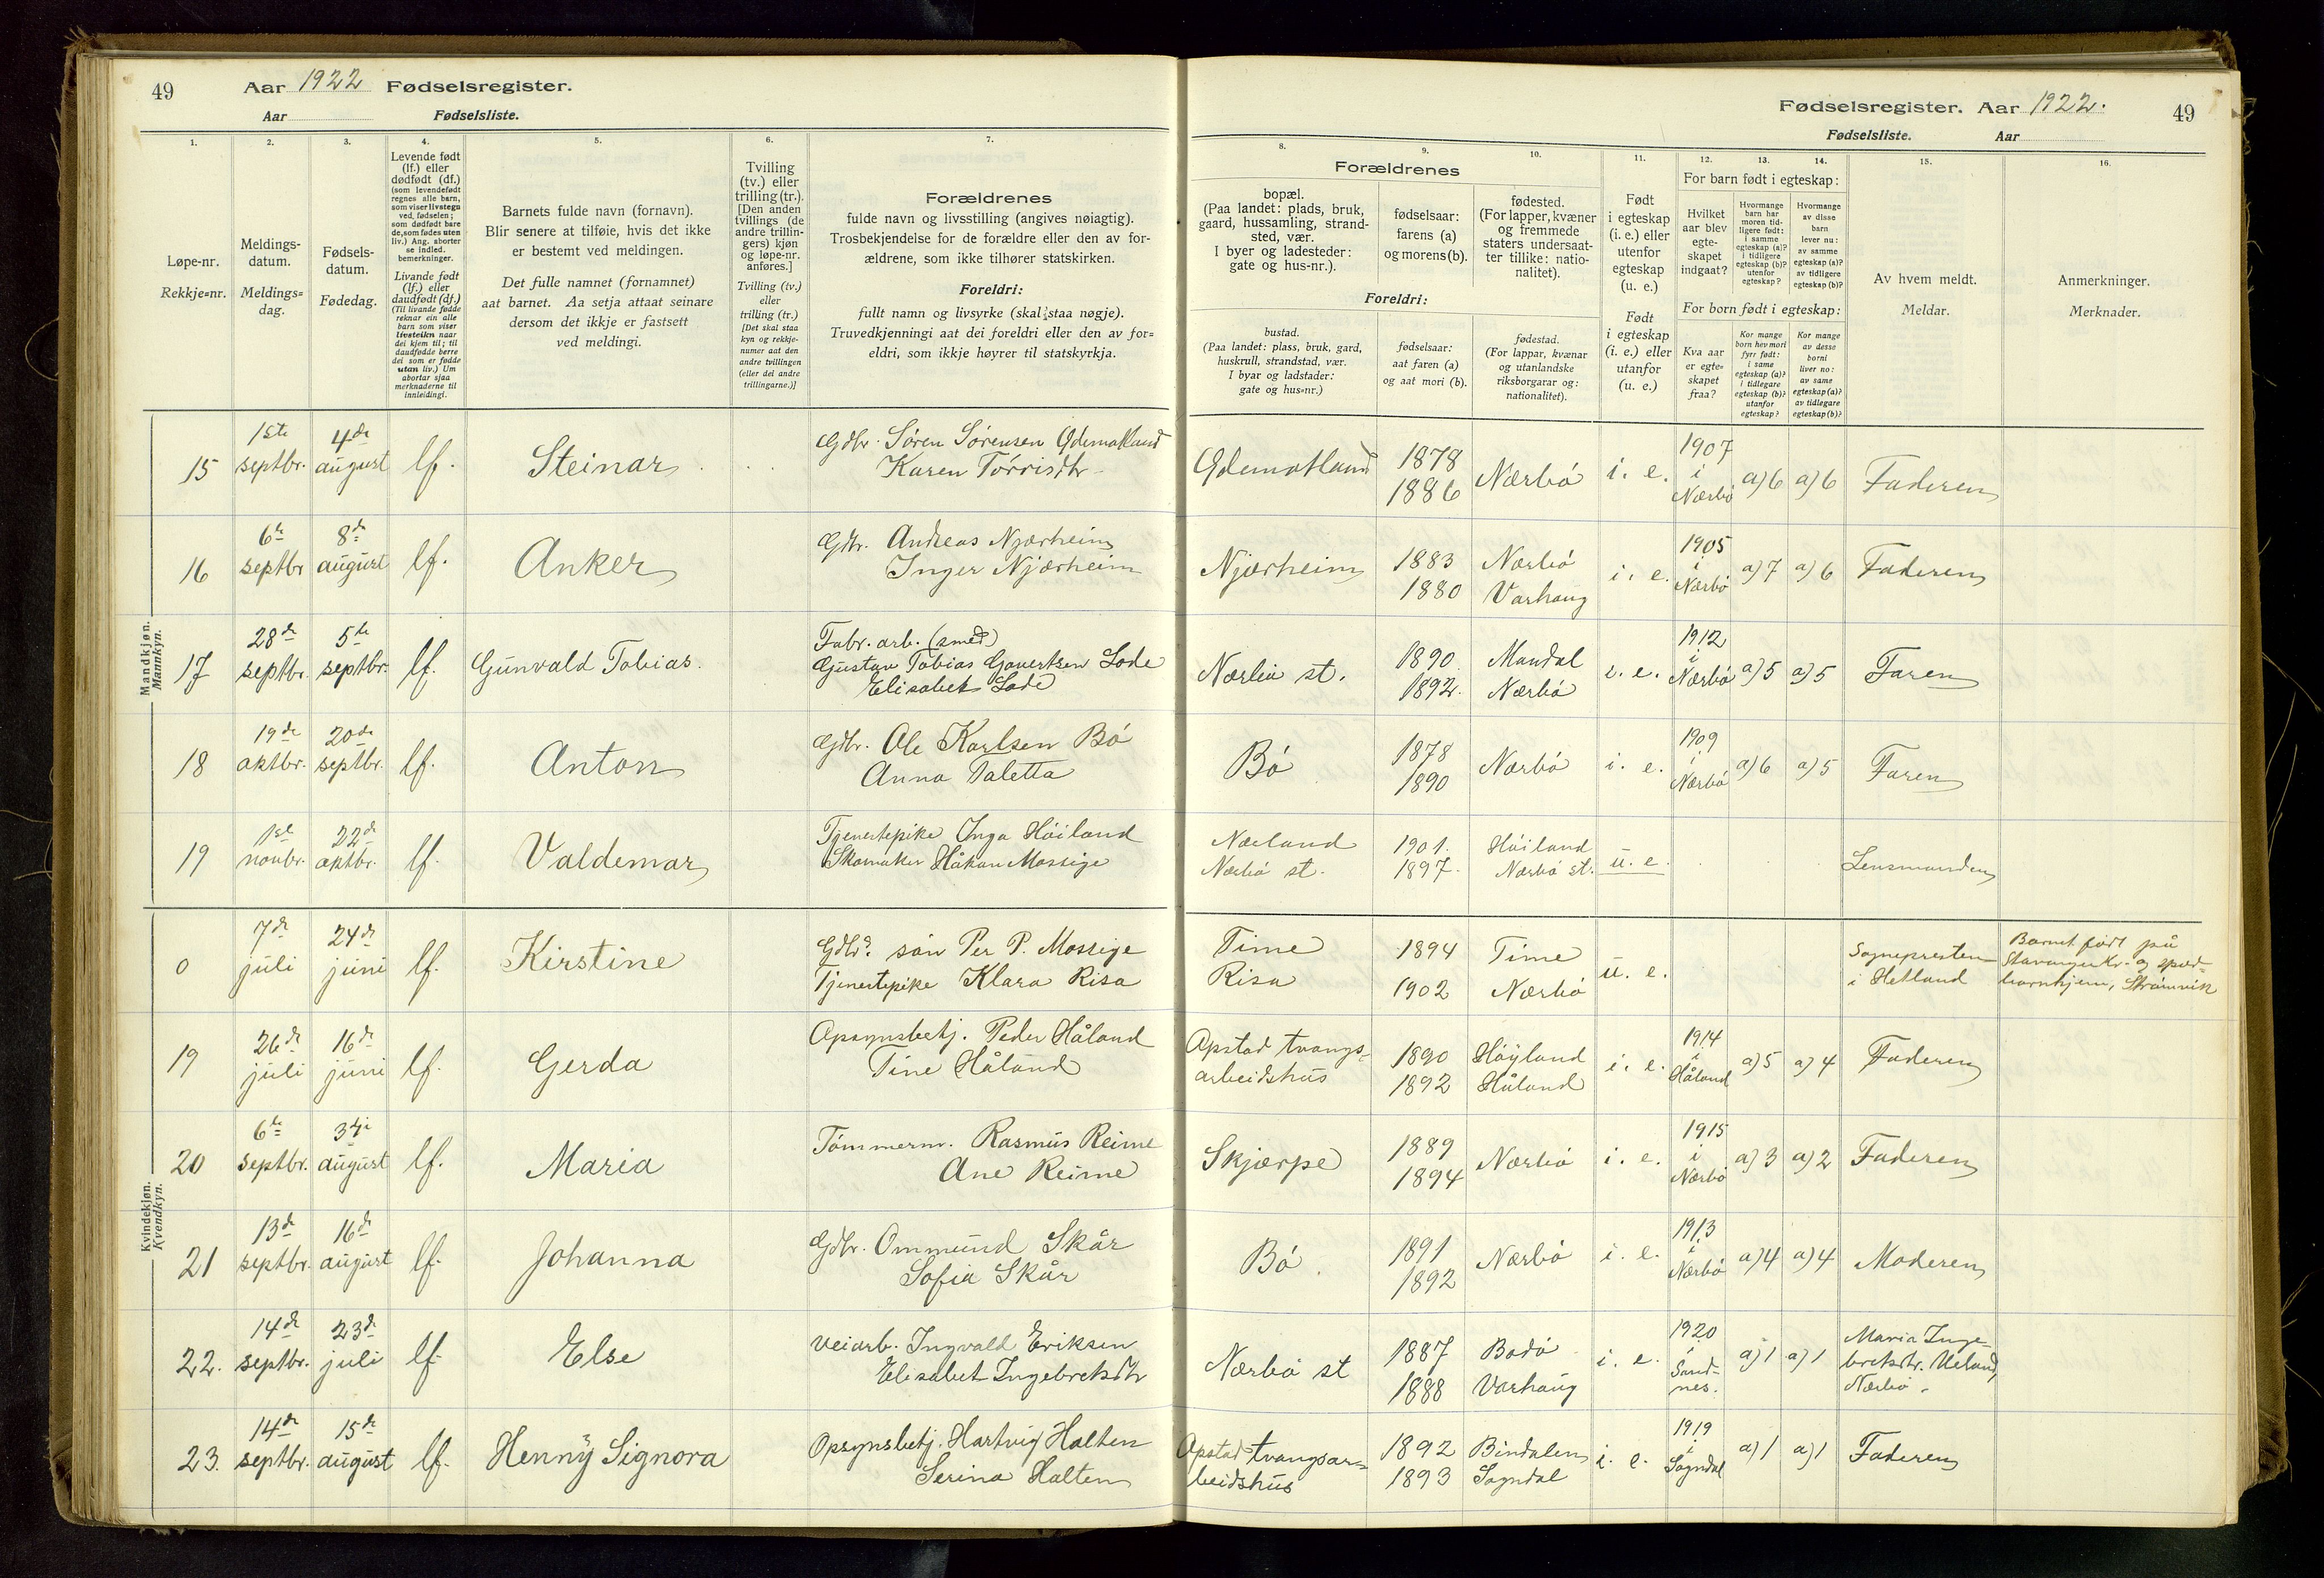 49 Aar 1922 Fødselsregister.
Aar Fødselsliste.
Fødselsregister. Aar 1922. 49
Fødselsliste. Aar
1. 2. 3. 4. 5. 6. 7. 8. 9. 10. 11. 12. 13. 14. 15. 16.
Løpe-nr.
Rekkje=nr.
Meldings-
datum.
Meldings=
dag.
Fødsels-
datum.
Fødedag.
Levende født
(lf.) eller
dødfødt (df.)
(som levendefødt
regnes alle barn,
som viser livstegn
ved fødselen;
som dødfødt bare
de, som fødes uten
liv.) Ang. aborter
se indled.
bemerkninger.
Livande født
(lf.) eller
daudfødt (df.)
(Til livande fødde
reknar ein alle
barn som viser
livsteikn naar
dei kjem til; til
daudfødde berre
dei som er fødde
utan liv.) Um
abortar sjaa
merknaderne til
innleidingi.
Barnets fulde navn (fornavn).
Blir senere at tilføie, hvis det ikke
er bestemt ved meldingen.
Det fulle namnet (fornamnet)
aat barnet. Aa setja attaat seinare
dersom det ikkje er fastsett
ved meldingi.
Tvilling
(tv.) eller
trilling (tr.).
[Den anden
tvillings (de
andre trillin-
gers) kjøn
og løpe-nr.
anføres.]
Tvilling (tv.)
eller
trilling (tr.)
[Det skal staa
kyn og rekkje-
numer aat den
andre tvillingen
(eller dei andre
trillingarne.)]
Forældrenes
fulde navn og livsstilling (angives nøiagtig).
Trosbekjendelse for de forældre eller den av for-
ældrene, som ikke tilhører statskirken.
Foreldri:
fullt namn og livsyrke (skal staa nøgje).
Truvedkjenningi aat dei foreldri eller den av for=
eldri, som ikkje høyrer til statskyrkja.
Forældrenes
bopæl.
(Paa landet: plads, bruk,
gaard, hussamling, strand-
sted, vær.
I byer og ladesteder:
gate og hus-nr.).
fødselsaar:
farens (a)
og morens (b).
fødested.
(For lapper, kvæner
og fremmede
staters undersaat-
ter tillike: natio-
nalitet).
Foreldri:
bustad.
(Paa landet: plass, bruk, gard,
huskrull, strandstad, vær.
I byar og ladstader:
gate og hus=nr.)
fødselsaar:
aat faren (a)
og aat mori (b).
fødestad.
(For lappar, kvænar
og utanlandske
riksborgarar og:
nationalitet).
Født
i egteskap
(i. e.) eller
utenfor
egteskap
(u. e.)
Født
i egteskap
(i. e.) eller
utanfor
(u. e.)
For barn født i egteskap:
Hvilket
aar blev
egte-
skapet
indgaat?
Hvormange
barn har
moren tid-
ligere født:
i samme
egteskap (a)?
i tidligere
egteskap (b)?
utenfor
egteskap?
Hvormange
av disse
barn
lever nu:
av samme
egteskap (a)?
av tidligere
egteskap (b)?
For born født i egteskap:
Kva aar
er egte=
skapet
fraa?
Kor mange
born hev mori
fyrr født:
i same
egteskap (a)?
i tidlegare
egteskap (b)?
utanfor
egteskap?
Kor mange
av desse
borni
liver no:
av same
egteskap (a)?
av tidlegare
egteskap (b)?
Av hvem meldt.
Meldar.
Anmerkninger.
Merknader.
Mandkjøn.
Mannkyn.
15 1ste septbr. 4de august lf. Steinar Gdbr. Søren Sørensen Odemotland
Karen Tørrisdtr. Odemotland 1878 1886 Nærbø i. e. 1907 i Nærbø a) 6 a) 6 Faderen
16 6te septbr 8de august lf. Anker Gdbr. Andreas Njærheim
Inger Njærheim Njærheim 1883 1880 Nærbø Varhaug i. e. 1905 i Nærbø a) 7 a) 6 Faderen
17 28de septbr. 5te septbr. lf. Gunvald Tobias. Fabr. arb. (smed)
Gustav Tobias Govertsen Lode
Elisabet Lode Nærbø st. 1890. 1892. Mandal Nærbø i. e. 1912 i Nærbø a) 5 a) 5 Faren
18 19de oktbr. 20de septbr. lf. Anton Gdbr. Ole Karlsen Bø
Anna Taletta Bø 1878 1890 Nærbø i. e. 1909 i Nærbø a) 6 a) 5 Faren
19 1ste novbr. 22de oktbr. lf. Valdemar Tjenestepike Inga Høiland
Skomaker Håkon Mossige Næland Nærbø st. 1901. 1897. Høiland Nærbø st. u. e. Lensmanden
Kvindekjøn.
Kvendkyn.
0 7de juli 24de juni lf. Kirstine Gdbr. søn Per P. Mossige
Tjenestepike Klara Risa Time Risa 1894 1902 Time Nærbø u. e. Sognepresten i Hetland Barnet født på
Stavanger kv. og sped-
barnhjem, Strømvik
19 26de juli 16de juni lf. Gerda Opsynsbetj. Peder Håland
Tine Håland Opstad tvangs-
arbeidshus 1890 1892 Høyland Håland i. e. 1914 i Håland a) 5 a) 4 Faderen
20 6te septbr. 3dje august lf. Maria Tømmerm. Rasmus Reime
Ane Reime Skjærpe 1889 1894 Nærbø i. e. 1915 i Nærbø a) 3 a) 2 Faderen
21 13de septbr. 16de august lf. Johanna Gdbr. Ommund Skår
Sofia Skår Bø 1891 1892 Nærbø i. e. 1913 i Nærbø a) 4 a) 4 Moderen
22. 14de septbr. 23de juli lf. Else Veiarb. Ingvald Eriksen
Elisabet Ingebretsdtr Nærbø st 1887 1888 Bodø Varhaug i. e. 1920 i Sand-
nes. a) 1 a) 1 Maria Inge-
bretsdtr. Ueland,
Nærbø.
23. 14de septbr. 15de august lf. Henny Signora Opsynsbetj. Hartvig Holten
Serina Holten Opstad tvangsar-
beidshus 1892 1893 Bindalen Sogndal i. e. 1919 i Sogndal a) 1 a) 1 Faderen